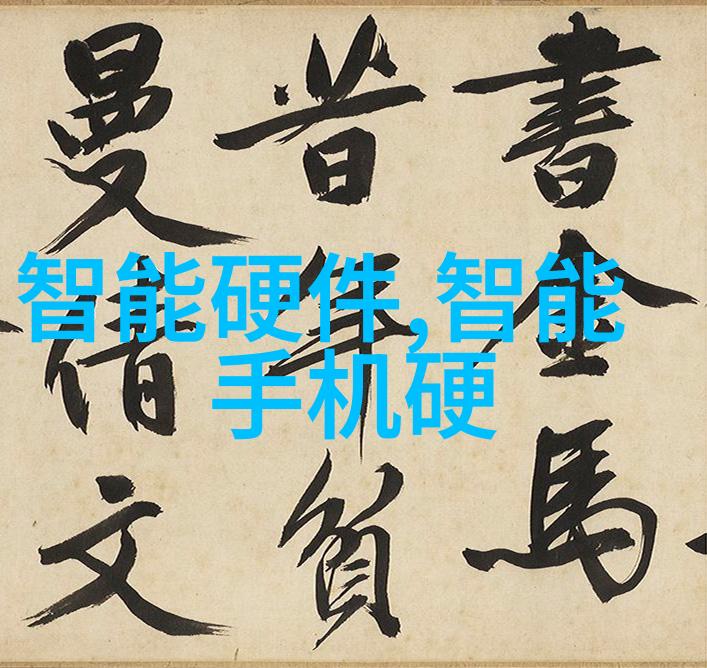 書金馬
昔年
曼倩文
智能硬件,智能
手机硬